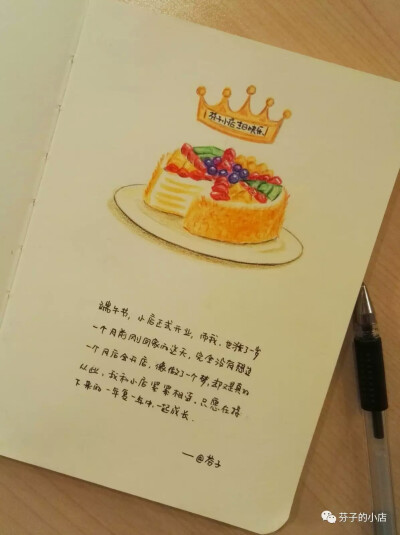 芬子小店生日快乐
端午节，小店正式开业，而我，也强了一岁
一个月前刚回家的这天，完全没有想过
一个月后会开店，像做了一个梦，却又是真的
从此，我和小店紧紧相连，只愿在接
下来的一年复一年中，一起成长.
——@芬子
芬子的小店